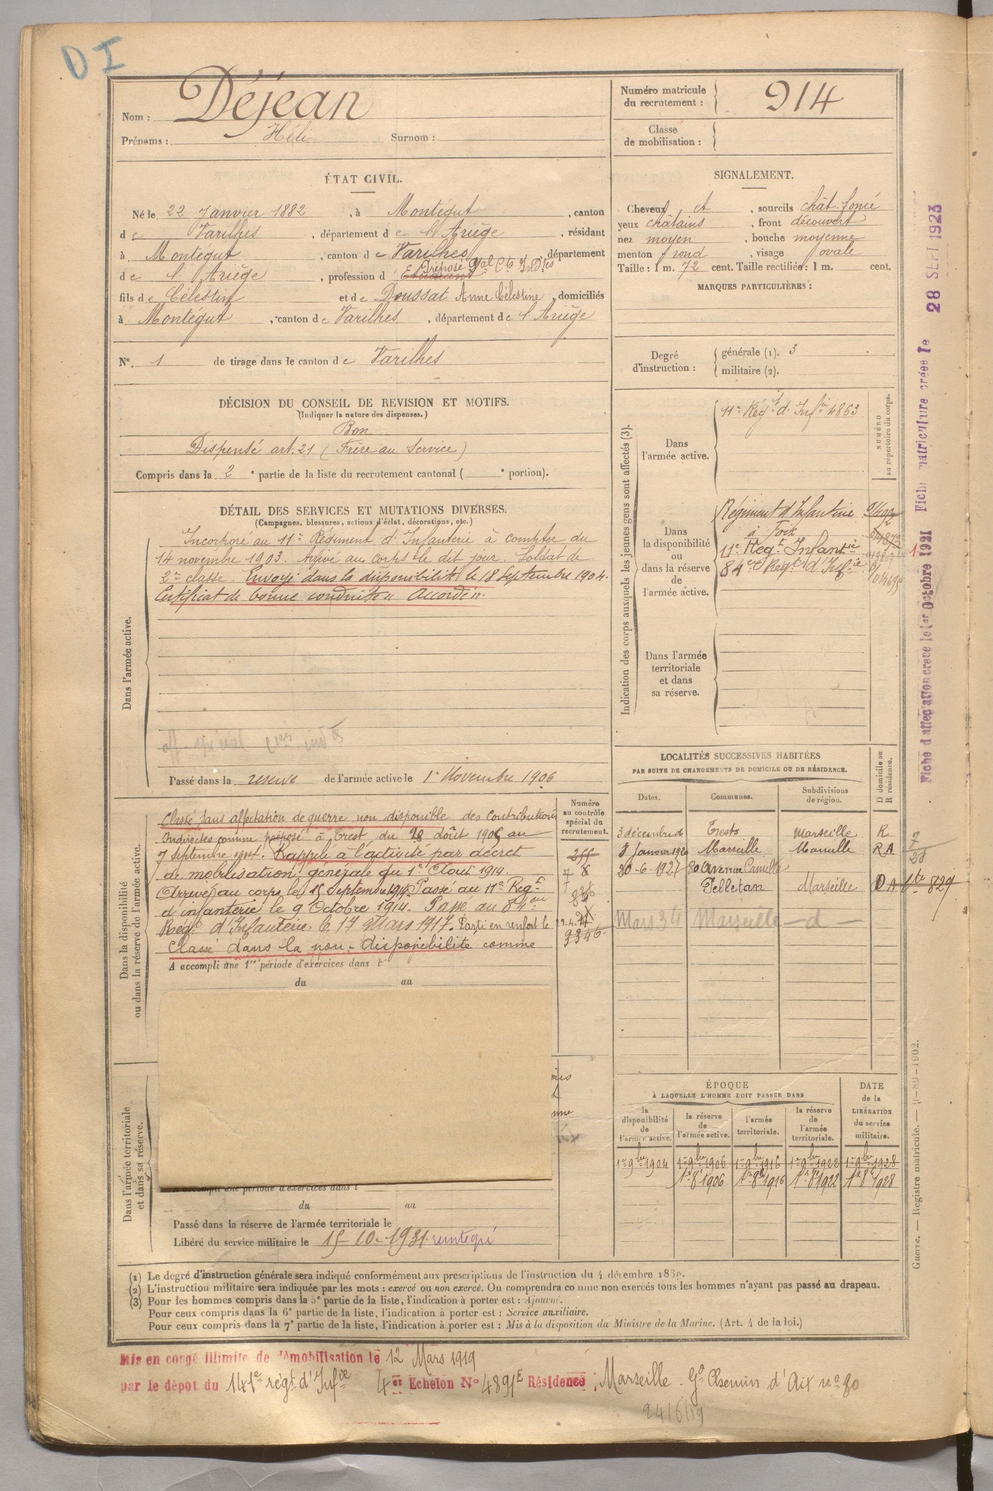 DI
Nom : Déjean
Prénoms : Héli Surnom :
Numéro matricule du recrutement : 914
Classe de mobilisation :
ÉTAT CIVIL.
Né le 22 Janvier 1882, à Montégut, canton
de Varilhes, département de l'Ariège, résidant
à Montégut, canton de Varilhes, département
de l'Ariège, profession d'
fils de Célestin et de Doussat Anne Célestine, domiciliés
à Montégut, canton de Varilhes, département de l'Ariège
N°. 1 de tirage dans le canton de Varilhes
SIGNALEMENT.
Cheveux et, sourcils chât. foncé
yeux châtains, front découvert
nez moyen, bouche moyenne
menton rond, visage ovale
Taille : 1 m. 72 cent. Taille rectifiée : 1 m. cent.
MARQUES PARTICULIÈRES :
Degré d'instruction : générale (1). 3
militaire (2).
DÉCISION DU CONSEIL DE REVISION ET MOTIFS.
(Indiquer la nature des dispenses.)
Bon
Dispensé art. 21 (Frère au Service)
Compris dans la 2e partie de la liste du recrutement cantonal ( e portion).
DÉTAIL DES SERVICES ET MUTATIONS DIVERSES.
(Campagnes, blessures, actions d'éclat, décorations, etc.)
Dans l'armée active.
Incorporé au 11e Régiment d'Infanterie à compter du
14 novembre 1903. Arrivé au corps le dit jour. Soldat de
2me classe. Envoyé dans la disponibilité le 18 Septembre 1904.
Certificat de bonne conduite "Accordé".
Passé dans la reserve de l'armée active le 1er Novembre 1906
Indication des corps auxquels les jeunes gens sont affectés (3).
NUMÉRO au répertoire du corps.
Dans l'armée active.
11e Régt d'Infie 4863
Dans la disponibilité ou dans la réserve de l'armée active.
Régiment d'Infanterie
à Foix
11e Régt Infanie
84e Régt d'Infie
Dans l'armée territoriale et dans sa réserve.
Dans la disponibilité ou dans la réserve de l'armée active.
Classé sans affectation de guerre non disponible des Contributions
Indirectes comme préposé à Trest, du 28 août 1906 au
7 septembre. Rappelé à l'activité par décret
de mobilisation générale du 1er Août 1914.
Arrivé au corps le Septembre 1914. Passé au 11e Régt
d'infanterie le 9 Octobre 1914. Passé au 84e
Régt d'Infanterie, le 17 Mars 1917. Parti en renfort le
Classé dans la non-disponibilité comme
A accompli une 1re période d'exercices dans l
du au
Numéro au contrôle spécial du recrutement.
LOCALITÉS SUCCESSIVES HABITÉES
PAR SUITE DE CHANGEMENTS DE DOMICILE OU DE RÉSIDENCE.
Dates. Communes. Subdivisions de région. D domicile ou R résidence.
3 décembre Trets Marseille R
8 Janvier 1920 Marseille Marseille RA
20-6-1921 80 Avenue Camille
Pelletan Marseille DA
Mars 34 Marseille - d -
ÉPOQUE
À LAQUELLE L'HOMME DOIT PASSER DANS
la disponibilité de l'armée active. la réserve de l'armée active. l'armée territoriale. la réserve de l'armée territoriale. DATE de la LIBÉRATION du service militaire.
1er 9bre 1904 1er 9bre 1906 1er 9bre 1916 1er 9bre 1922 1er 9bre 1928
1er 8bre 1906 1er 8bre 1916 1er 8bre 1922 1er 8bre 1928
Dans l'armée territoriale et dans sa réserve.
du au
Passé dans la réserve de l'armée territoriale le
Libéré du service militaire le 15-10-1931
(1) Le degré d'instruction générale sera indiqué conformément aux prescriptions de l'instruction du 4 décembre 1889.
(2) L'instruction militaire sera indiquée par les mots : exercé ou non exercé. On comprendra comme non exercés tous les hommes n'ayant pas passé au drapeau.
(3) Pour les hommes compris dans la 5e partie de la liste, l'indication à porter est : Ajourné.
Pour ceux compris dans la 6e partie de la liste, l'indication à porter est : Service auxiliaire.
Pour ceux compris dans la 7e partie de la liste, l'indication à porter est : Mis à la disposition du Ministre de la Marine. (Art. 4 de la loi.)
Mis en congé illimité de démobilisation le 12 Mars 1919
par le dépot du 141e régt d'Infie 4er Echelon N° 4891E Résidence : Marseille Gd Chemin d'Aix no 80
Fiche d'affectation créée le 1er Octobre 1921 Fiche matriculaire créée le 28 SEPT 1923
Guerre. — Registre matricule.